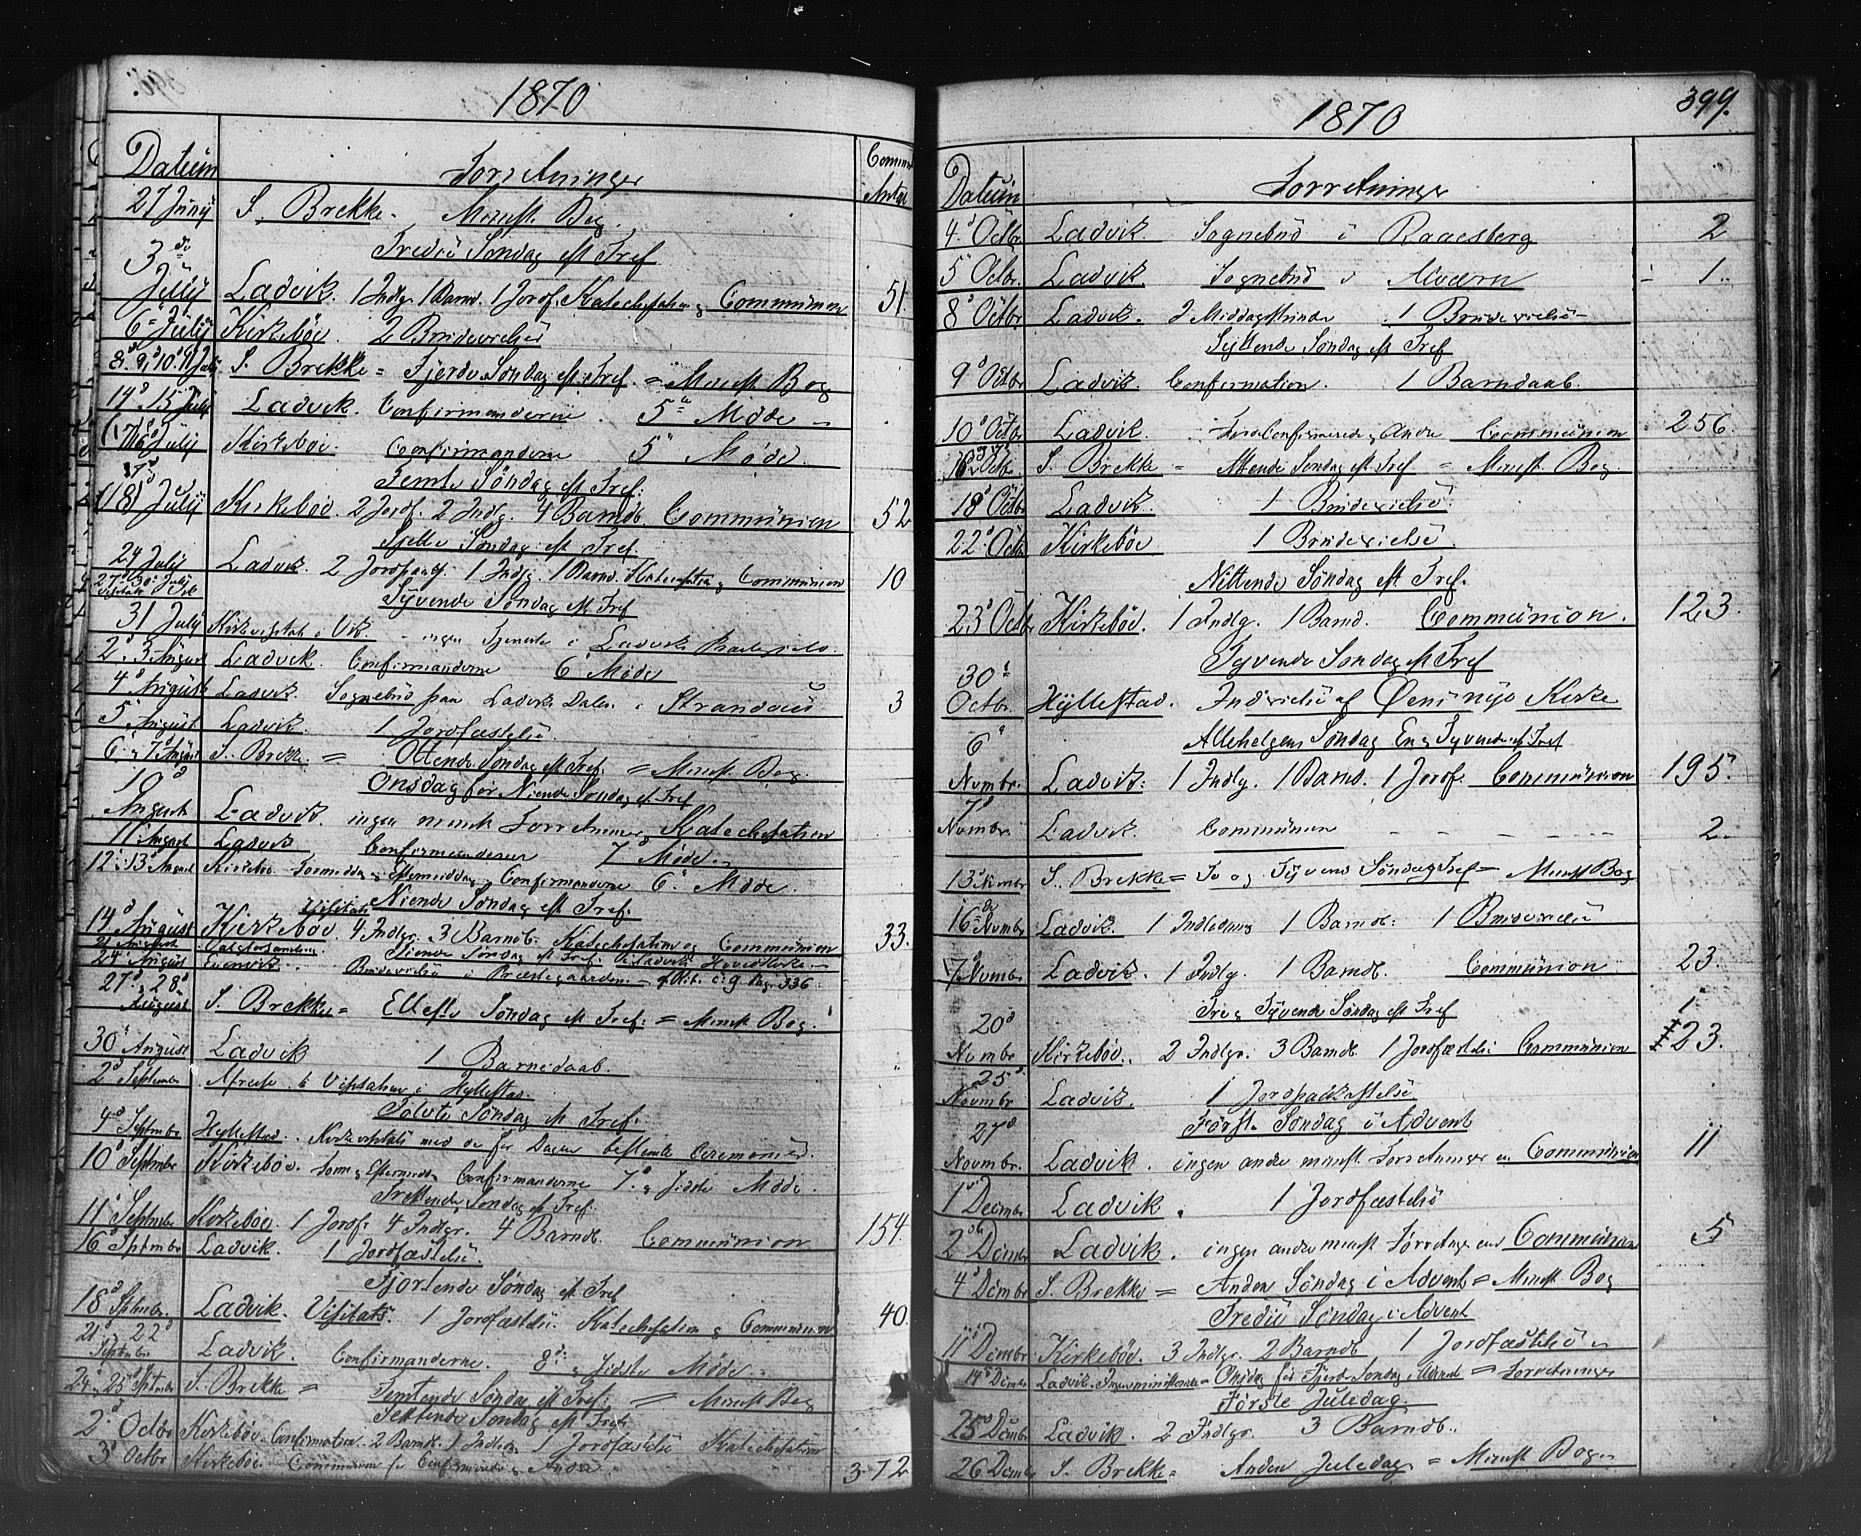 1870
Datum
Forretninger
Commun Antal
27 Junij S. Brekke. Minist. Bog
Tredie Søndag eft Tref
3die
Julij Ladvik. 1 Indlg. 1 Barnd. 1 Jordf. Katechesation og Communion 51
6te Julij Kirkebøe. 2 Brudevielser
8d 9, 10d Julij S. Brekke = Fjerde Søndag eft Tref. = Minist Bog
14d 15 Julij Ladvik. Confirmanderne. 5te Møde
16d Julij Kirkebøe. Confirmanderne 5te Møde.
Femte Søndag eft Tref.
17d
Julij Kirkebøe. 2 Jordf. 2 Indlg. 4 Barndb. Communion 52
Sjette Søndag eft Tref
24 Julij Ladvik. 2 Jordpaak. 1 Indlg. 1 Barnd. Katechesation og Communion 10
27d 30d Julij
Syvende Søndag eft Tref
31 Julij Kirkevisitats i Vik ingen Tjeneste i Ladvik
2d 3 August Ladvik. Confirmanderne 6te Møde
4d August Ladvik. Sognebud paa Ladviks Dalen i Strandens 3
5 August Ladvik. 1 Jordfæstelse
6d 7d August S. Brekke = Ottende Søndag eft Tref. = Minist Bog
Onsdag før Niende Søndag eft Tref
10d
August Ladvik. ingen minist Forretninger, Katechesation
11 August Ladvik Confirmanderne 7d Møde
12d 13d August Kirkebøe Formiddag og Eftermiddag Confirmanderne 6te Møde.
Niende Søndag eft Tref.
14d August Kirkebøe Visitats 4 Indlgr. 3 Barndb. Katechesation og Communion 33.
21 August Tiende Søndag eft Tref.
24d August Evenvik. Brudevielse i Præstegaarden Pag. 336.
27d 28d
August S. Brekke = Ellefte Søndag eft Tref. = Minist Bog
30d August Ladvik 1 Barnedaab.
2d September Afreise til Visitats i Hyllestad
Tolvte Søndag eft Tref.
4d Septmbr Hyllestad. Kirkevisitats med de for Dagen bestemte Ceremonier.
10d Septmbr Kirkebøe. Form og Eftermidd. Confirmanderne 7d og sidste Møde.
Trettende Søndag eft Tref.
11d Septmbr Kirkebøe 1 Jordf. 4 Indlgr. 4 Barndb. Communion 154.
16d Septmbr Ladvik. 1 Jordfæstelse.
Fjortende Søndag eft Tref
18d Septmbr. Ladvik. Visitats. 1 Jordfæstelse. Katechesation og Communion 40.
21d 22d
Septmbr Ladvik. Confirmanderne. 8de og sidste Møde.
24d, 25d Septmbr S. Brekke = Femtende Søndag eft Tref. = Minist Bog
Sextende Søndag eft Tref
2d Octbr Kirkebøe. Confirmation. 2 Barndb. 1 Indlg. 1 Jordfæstelse Katechesation
3d Octbr Kirkebøe. Communion for Confirmerede og Andre 372
1870
399.
Datum
Forretninger
4d Octbr. Ladvik. Sognebud i Raaesberg 2
5 Octbr. Ladvik. Sognebud i Alværn 1.
8d Octbr Ladvik. 1 Brudevielse
Syttende Søndag eft Tref
9d Octbr Ladvik. Confirmation. 1 Barndaab.
10d Octbr Ladvik. for Confirmerede og Andre Communion 256.
16 Octbr. S. Brekke = Attende Søndag eft Tref = Minist Bog
18d Octbr Ladvik. 1 Brudevielse
22d Octbr Kirkebøe 1 Brudevielse.
Nittende Søndag eft Tref.
23d Octbr Kirkebøe. 1 Indlg. 1 Barnd. Communion. 123.
Tyvende Søndag eft Tref
30d
Octbr. Hyllestad. Indvielse af Øens nye Kirke
Allehelgens Søndag En og Tyvende eft Tref
6d
Novmbr. Ladvik. 1 Indlg. 1 Barnd. 1 Jordf. Communion 195.
7d
Novmbr. Ladvik. Communion 2.
13d Novmbr S. Brekke = To og Tyvend Søndag eft Tref = Minist Bog
16de Novmbr Ladvik. 1 Indledning 1 Barndb. 1 Brudevielse
Novmbr. Ladvik. 1 Indlg. 1 Barndb. Communion 23.
Tre og Tyvende Søndag eft Tref
20d
Novmbr Kirkebøe. 2 Indlgr. 3 Barndb. 1 Jordfæstelse Communion 123.
25d
Novmbr Ladvik. 1 Jordpaakastelse
27d Første Søndag i Advent
Novmbr. Ladvik. ingen andre minist Forretninger en Communion 11
1 Decmbr Ladvik. 1 Jordfæstelse
2d Decmbr Ladvik. ingen andre minist Forretninger end Communion 5
4d Decmbr S. Brekke = Anden Søndag i Advent = Minist Bog
Tredie Søndag i Advent
11 Decmbr Kirkebøe. 3 Indlgr. 2 Barndb 1 Jordfæstelse
14d Decmbr Ladvik. Ingen ministerielle = Onsdag før Fjerde Søndag i Advent = Forretninger
Første Juledag.
25d Decmbr Ladvik. 2 Indlgr. 3 Barndb.
26 Decmbr S. Brekke = Anden Juledag = Minist Bog.